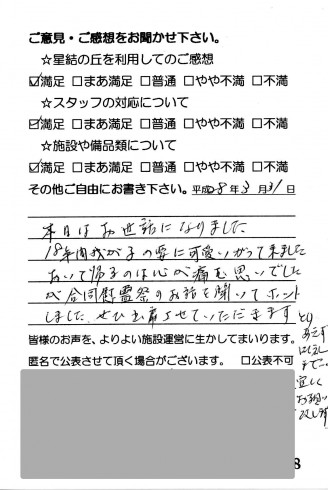 ご意見・ご感想をお聞かせ下さい。
☆星結の丘を利用してのご感想
☑満足 □まあ満足 □普通 □やや不満 □不満
☆スタッフの対応について
☑満足 □まあ満足 □普通 □やや不満 □不満
☆施設や備品類について
☑満足 □まあ満足 □普通 □やや不満 □不満
その他ご自由にお書き下さい。平成28年3月31日
本日はお世話になりました
18年間我が子の様に可愛いがって来ました
おいて帰るのは心が痛む思いでした
が合同慰霊祭のお話を聞いてホット
しました、ぜひ出席させていただきます
とり
あえず
宜しく
お願い
皆様のお声を、よりよい施設運営に生かしてまいります。
匿名で公表させて頂く場合がございます。 □公表不可
8